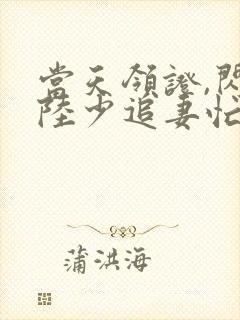 當天領證,閃
陸少追妻忙
蒲洪海